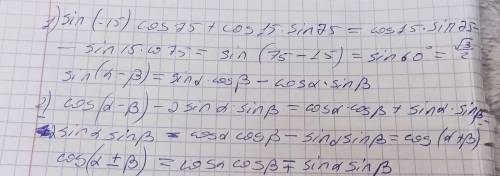 1) sin(-15) cos 75 + cos 15 · sin 75 = cos 15 · sin 75 -
- sin 15 · co 75 = sin (75 - 15) = sin 60° = √3/2
sin(α - β) = sin α · cos β - cos α · sin β
2) cos(α - β) - 2 sin α · sin β = cos α · cos β + sin α · sin β -
2 sin α sin β = cos α cos β - sin α sin β = cos (α + β)
cos(α ± β) = cos α cos β ∓ sin α sin β